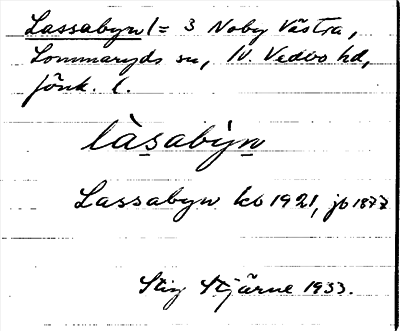 Lassabyn (= 3 Noby Västra,
Lommaryds sn, N. Vedbo hd,
Jönk. l.
làsabỳn
Lassabyn kb 1921, jb 1877
Stig Stjärne 1933.